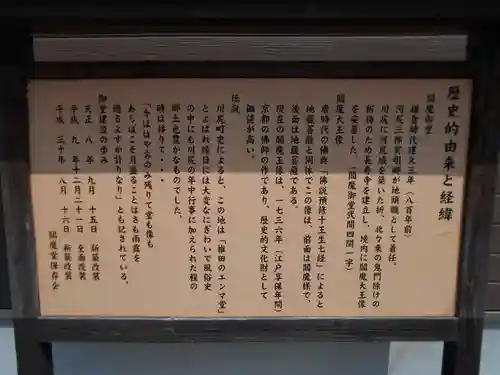 歴史的由来と経緯
閻魔御堂
鎌倉時代建久三年（八百年前）
河尻三郎実明卿が地頭職として着任。
川尻に河尻城を築いた折、北々東の鬼門除けの
祈祷のため長寿寺を建立し、境内に閻魔大王像
を安置した。（閻魔御堂弐間四間一宇）
閻魔大王像
唐時代の仏典「仏説預修十王生七経」によると
地蔵菩薩と同体でこの像は、前面は閻魔様で、
後面は地蔵菩薩である。
現在の閻魔王像は、一七三六年（江戸享保年間）
京都の仏師の作であり、歴史的文化財として
価値が高い。
伝説
川尻町史によると、この地は「雁田のエンマ堂」
とよばれ縁日には大変なにぎわいで風俗史
の中にも川尻の年中行事に加えられた程の
郷土色豊かなものでした。
時は移りて・・・・
「今はははやおのみ残りて堂も像も
あらばこそ月盛ることはさも雨露を
過るよすが計りなり」とも記されている。
御堂建設の歩み
天正 八年 九月 十五日 新築改築
平成 九年 十二月 二十一日 全面改築
平成 三十年 八月 十六日 新築改築
閻魔堂保存会